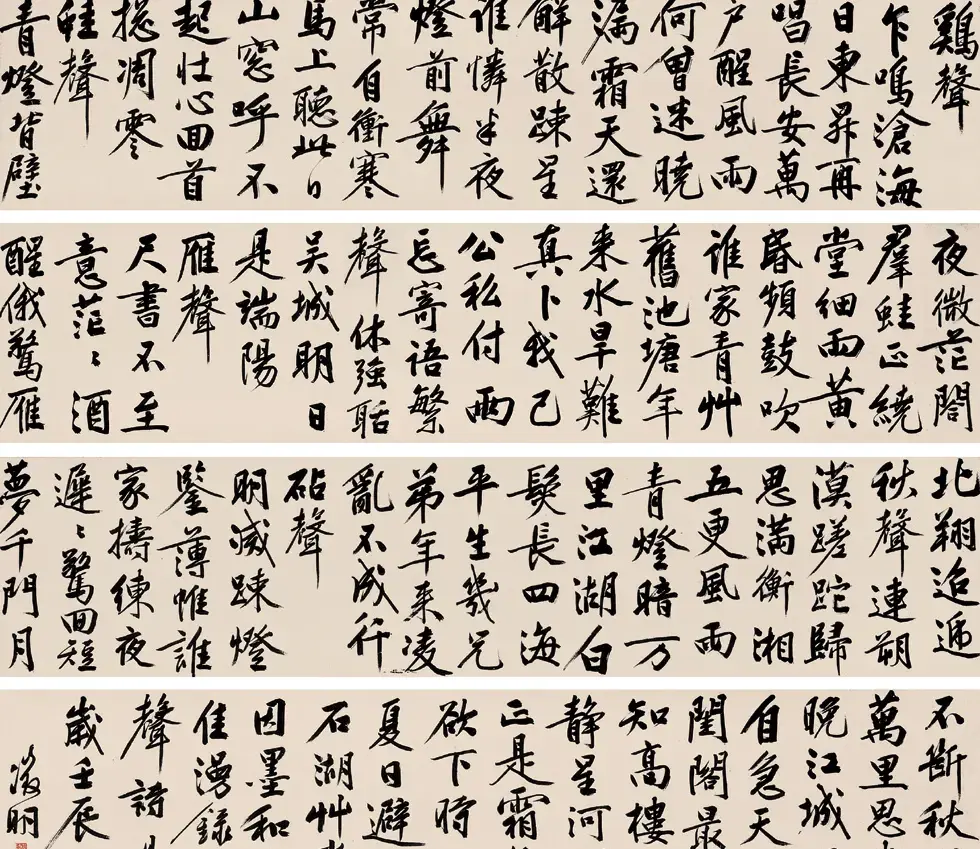 雞聲
乍鳴滄海
日東昇再
唱長安萬
戶醒風雨
何曾迷曉
漏霜天還
解散疎星
誰憐半夜
燈前舞
常自衝寒
馬上聽此日
山窓呼不
起壯心回首
摠凋零
蛙聲
青燈背壁
夜微茫閤
羣蛙正繞
堂細雨黃
昏頻鼓吹
誰家青艸
舊池塘年
来水旱難
真卜我已
公私付兩
忘寄語繁
聲休强聒
吳城明日
是端陽
雁聲
尺書不至
意茫〻酒
醒俄驚雁
北翔迢遞
秋聲連朔
漠蹉跎歸
思滿衡湘
五更風雨
青燈暗万
里江湖白
髮長四海
平生幾兄
弟年来凌
亂不成行
砧聲
明滅踈燈
鑒薄帷誰
家擣練夜
遲〻驚回短
夢千門月
不斷秋
萬里思
晚江城
自急天
閨閤最
知高樓
静星河
正是霜
欲下時
夏日避
石湖艸
因墨和
佳漫錄
聲詩
歲壬辰
徵明